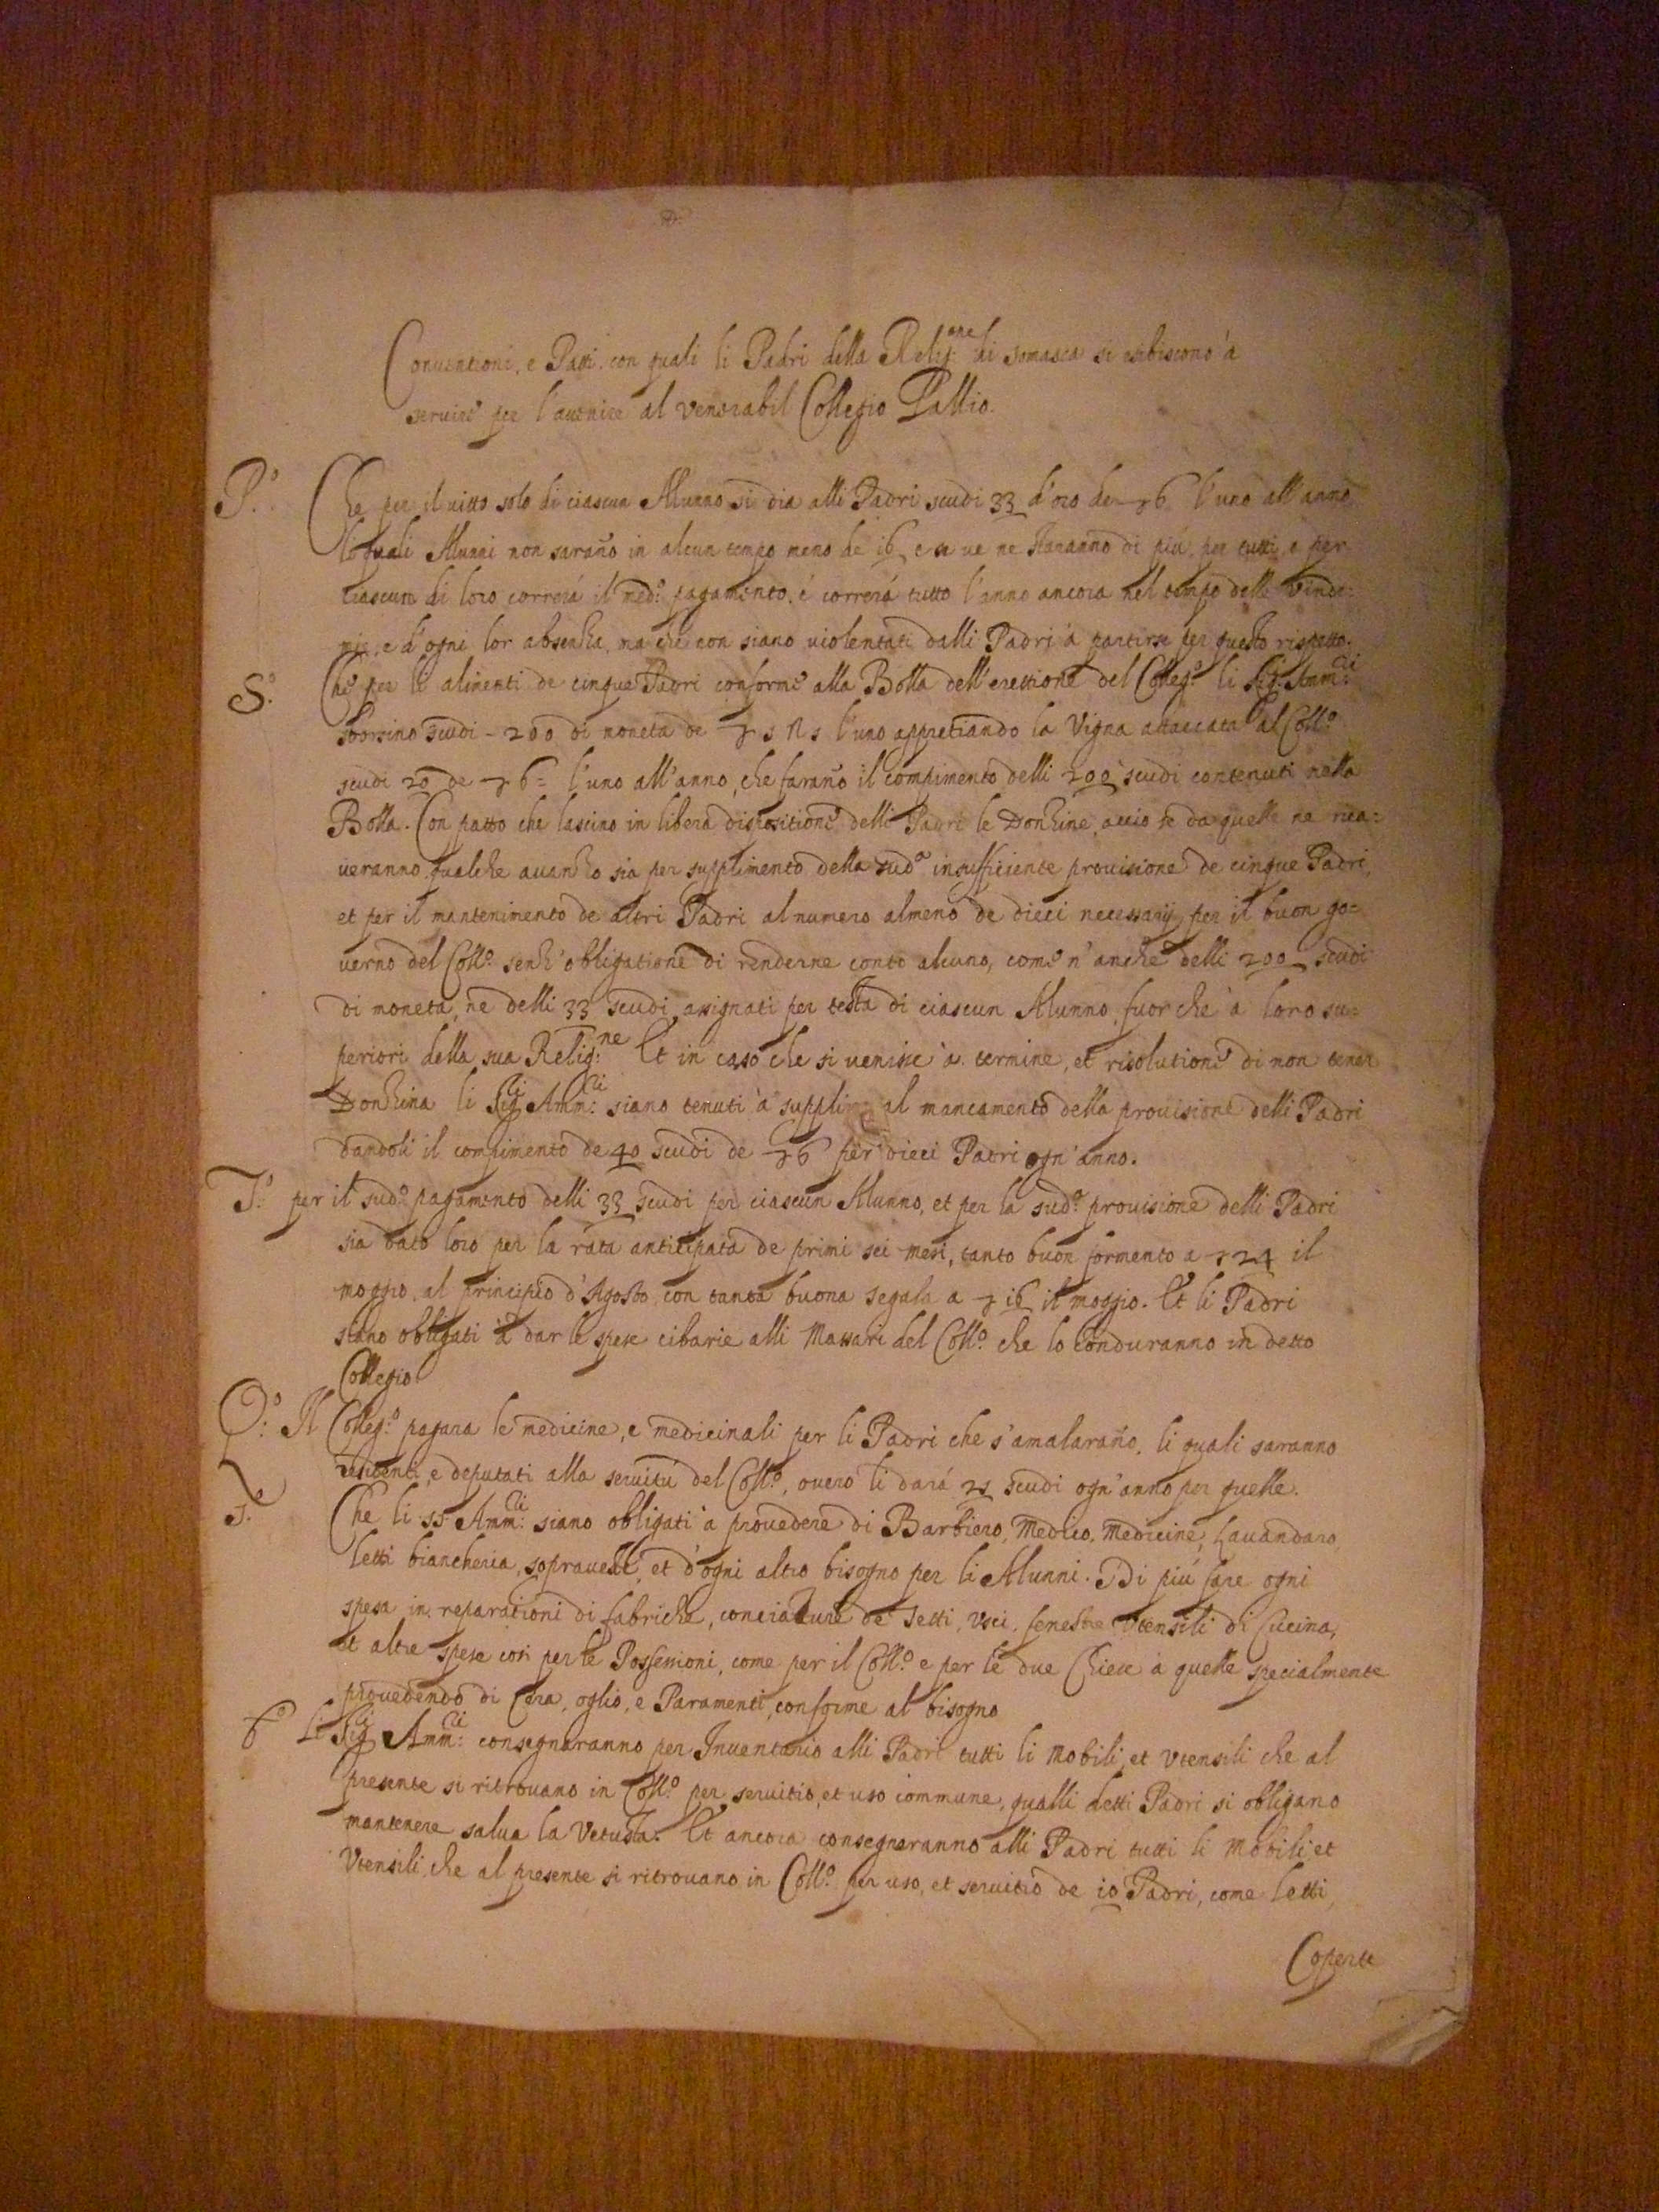 Conuentioni, e Patti con quali li Padri della Relig:one di somasca si esibiscono à
seruire per l'auenire al Venerabil Collegio Gallio.
P.o Che per il uitto solo di ciascun Alunno si dia alli Padri scudi 33 d'oro de 6 l'uno all'anno
li quali Alunni non sarano in alcun tempo meno de 16, e se ue ne staranno di più, per tutti, e per
ciascun di loro correrà il med.o pagamento, è correrà tutto l'anno ancora nel tempo delle Vinde=
mie, e d'ogni lor absenza, ma che non siano uiolentati dalli Padri à partirse per questo rispetto.
S.o Che per li alimenti de cinque Padri conforme alla Bolla dell'erettione del Colleg.o li Sig.ri Amm:ri
sborsino scudi - 200 di moneta de 5 s 5 l'uno appretiando la Vigna attaccata al Coll.o
scudi 20 de 6 = l'uno all'anno, che farano il compimento delli 200 scudi contenuti nella
Bolla. Con patto che lascino in libera dispositione delli Padri le Donzine, accio se da quelle ne rica=
ueranno qualche auanzo sia per supplimento della sud.a insufficiente prouisione de cinque Padri,
et per il mantenimento de altri Padri al numero almeno de dieci necessarij per il buon go=
uerno del Coll.o senz'obligatione di renderne conto alcuno, come n'anche delli 200 scudi
di moneta, ne delli 33 scudi assignati per testa di ciascun Alunno, fuor che à loro su=
periori della sua Relig:ne Et in caso che si uenisse à termine, et risolutione di non tener
Donzina li Sig.ri Amm:ri siano tenuti à supplire al mancamento della prouisione delli Padri
dandoli il compimento de 40 scudi de 6 per dieci Padri ogn'anno.
T.o per il sud.o pagamento delli 33 scudi per ciascun Alunno, et per la sud.a prouisione delli Padri
sia dato loro per la rata anticipata de primi sei mesi, tanto buon formento a 24 il
moggio, al principio d'Agosto, con tanta buona segala a 16 il moggio. Et li Padri
siano obligati à dar le spese cibarie alli Massari del Coll.o che lo conduranno in detto
Collegio.
Q.o Il Colleg.o pagara le medicine, e medicinali per li Padri che s'amalarano, li quali saranno
residenti, e deputati alla seruitù del Coll.o, ouero li darà 25 scudi ogn'anno per quelle.
5.o Che li SS.ri Amm:ri siano obligati à prouedere di Barbiero, Medico, Medicine, Lauandaro,
letti biancheria, soprauesti, et d'ogni altro bisogno per li Alunni. Di più fare ogni
spesa in reparationi di fabriche, conciature de tetti, Vsci, fenestre Vtensili di Cucina,
et altre spese cosi per le Possessioni, come per il Coll.o e per le due Chiese à quelle specialmente
prouedendo di Cera, oglio, e Paramenti, conforme al bisogno
6.o Li Sig.ri Amm:ri consegnaranno per Inuentario alli Padri tutti li Mobili, et Vtensili che al
presente si ritrouano in Coll.o per seruitio, et uso commune, qualli detti Padri si obligano
mantenere salua la Vetustà. Et ancora consegnaranno alli Padri tutti li Mobili et
Vtensili che al presente si ritrouano in Coll.o per uso, et seruitio de 10 Padri, come letti,
Coperte